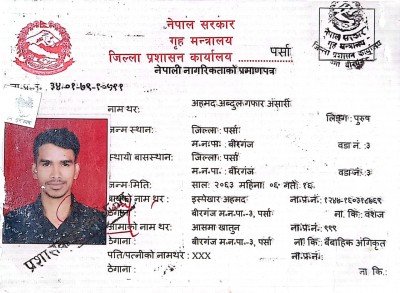 नेपाल सरकार
गृह मन्त्रालय
जिल्ला प्रशासन कार्यालय पर्सा
नेपाली नागरिकताको प्रमाणपत्र
नेपाल सरकार
गृह मन्त्रालय
ना.प्र.नं.: ३४-०१-७९-१०५११
नाम थर: अहमद अब्दुल गफार अंसारी
लिङ्ग: पुरुष
जन्म स्थान: जिल्ला: पर्सा
म.न.पा.: बीरगंज वडा नं.: ३
स्थायी बासस्थान: जिल्ला: पर्सा
म.न.पा.: बीरगंज वडा नं.: ३
जन्म मिति: साल: २०६३ महिना: ०६ गते: १६
बाबुको नाम थर: इस्पेखार अहमद ना.प्र.नं.:
ठेगाना: बीरगंज म.न.पा.-३, पर्सा ना. कि.: वंशज
आमाको नाम थर: आसमा खातुन ना.प्र.नं.: ९९९
ठेगाना: बीरगंज म.न.पा.-३, पर्सा ना. कि.: बैबाहिक अंगिकृत
पति/पत्नीको नामथर: XXX ना.प्र.नं.:
ठेगाना: ना. कि.: